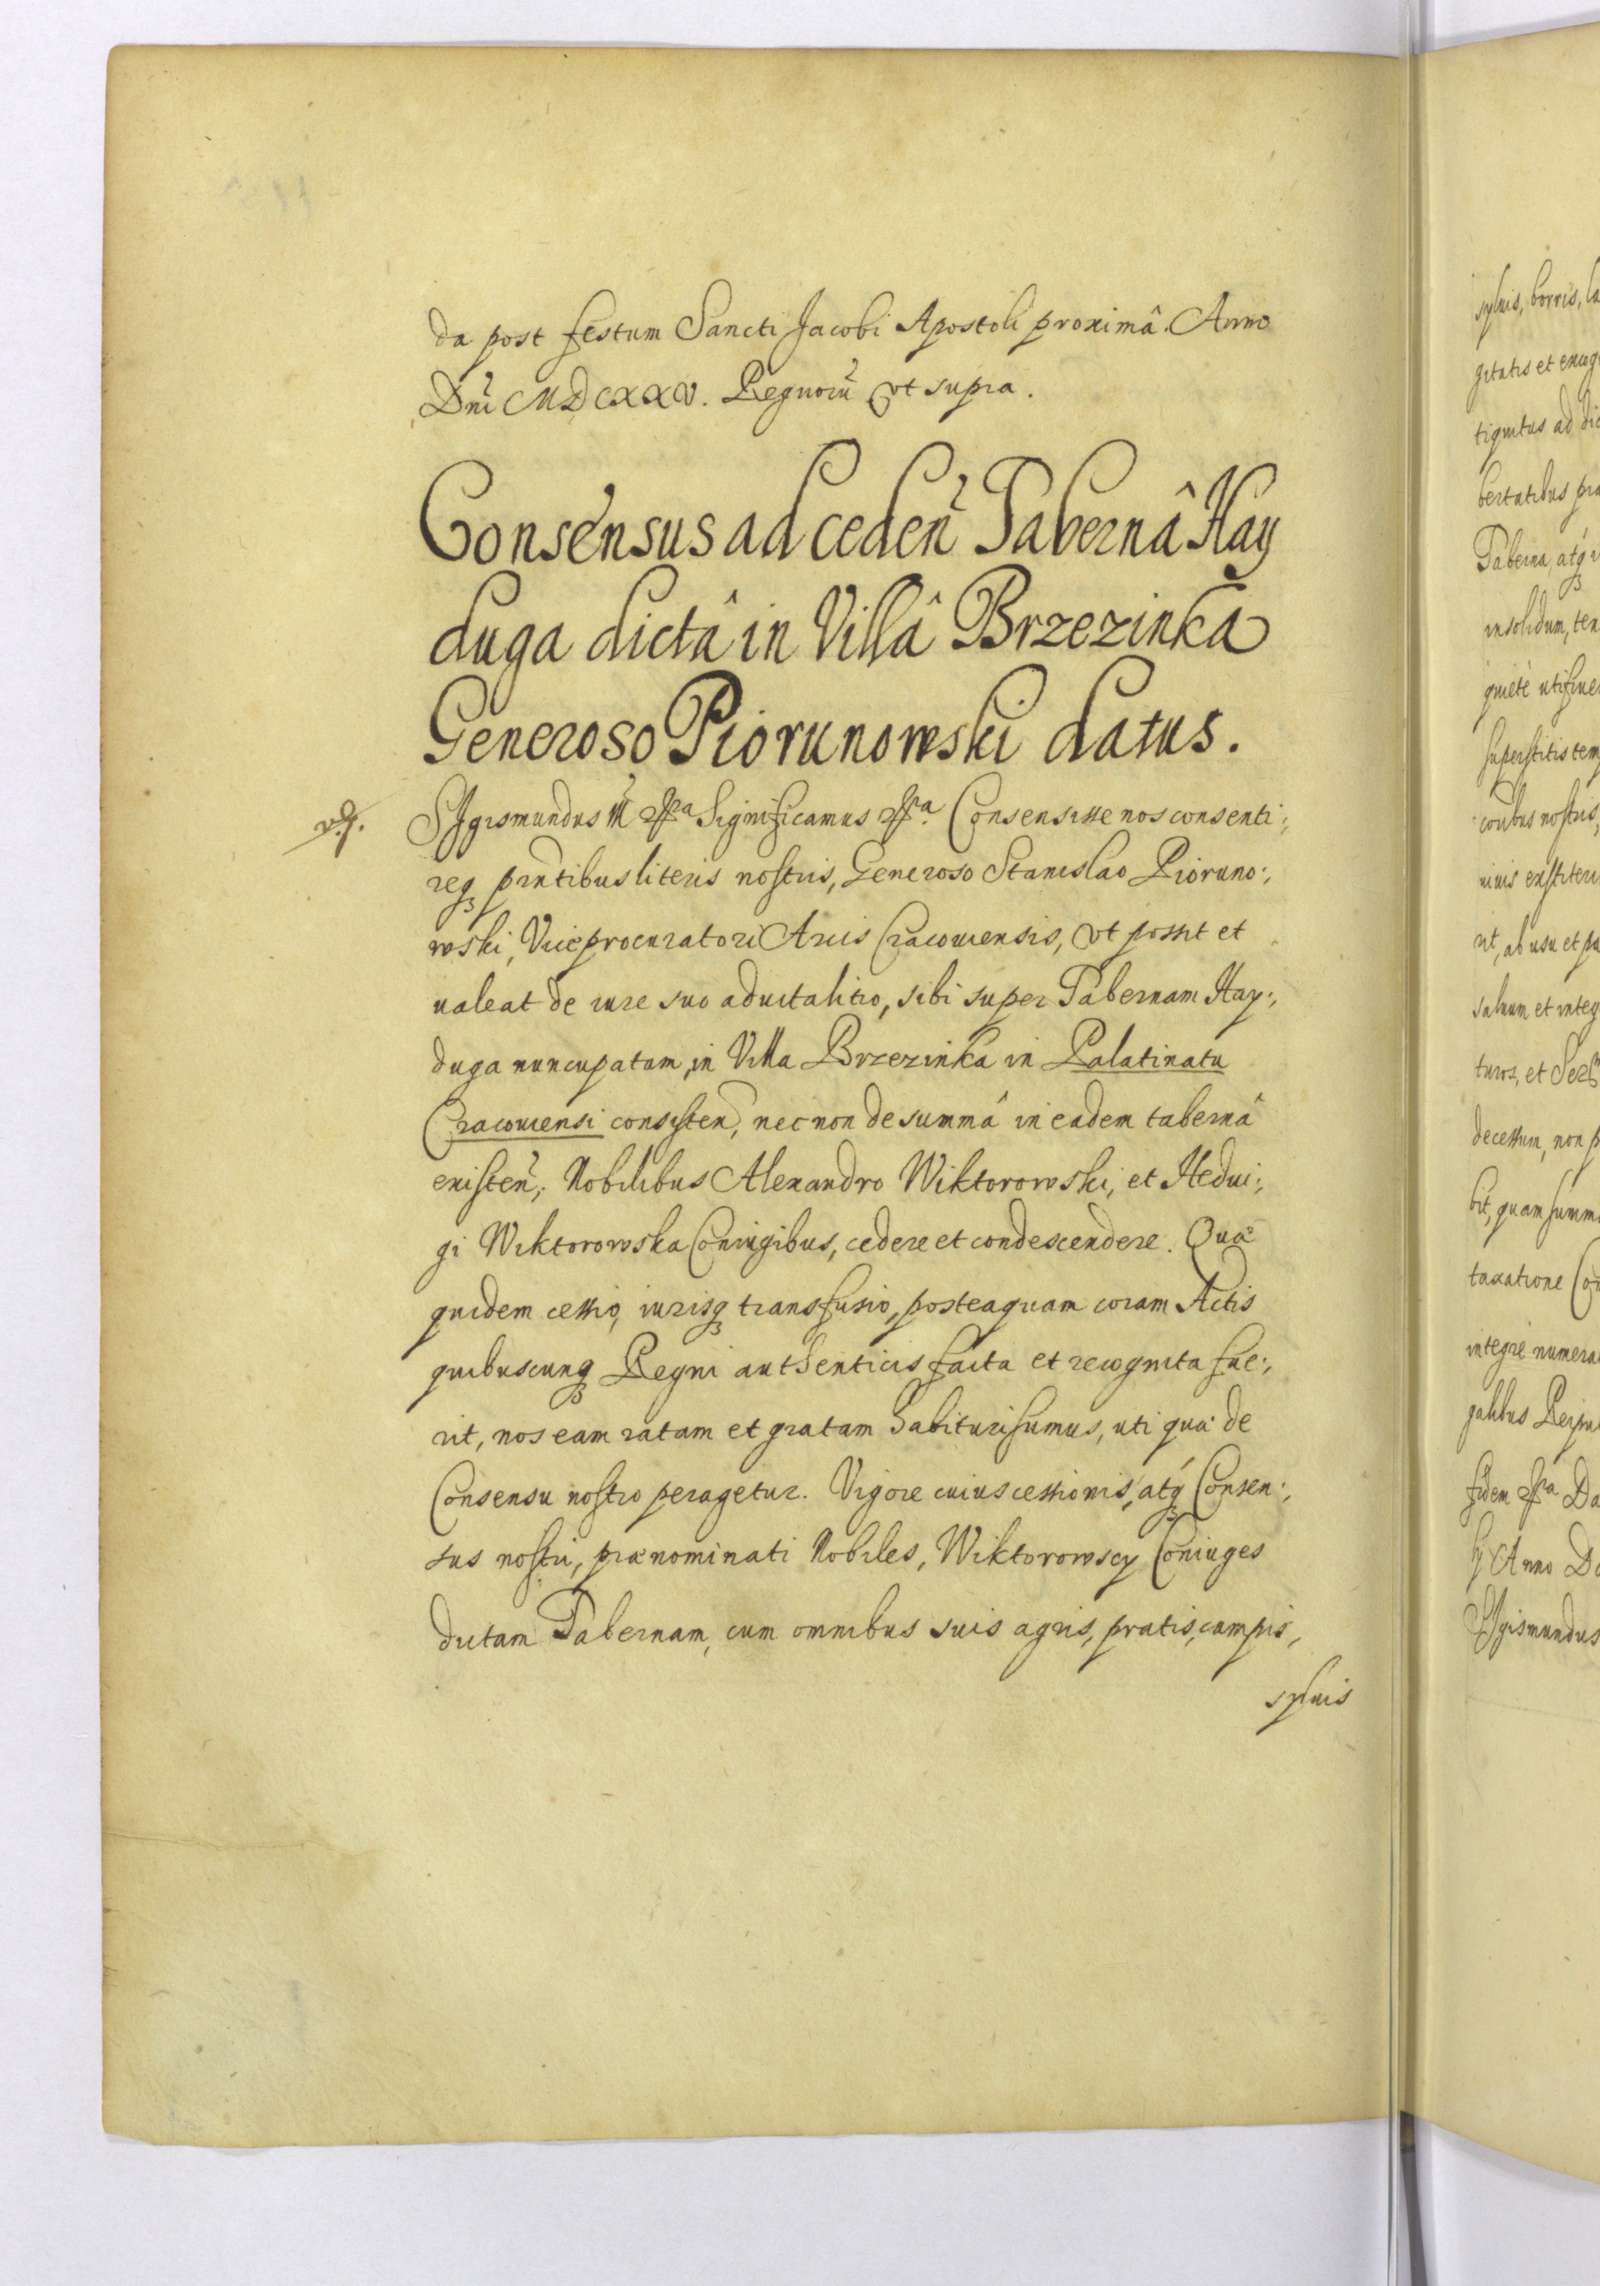 da post festum Sancti Jacobi Apostoli proximâ. Anno
Dni MDCXXV. Regnorũ vt supra.
Consensus ad ceden̄ Tabernâ Hay
duga dictâ in Villâ Brzezinka
Generoso Piorunowski datus.
SIgismundus III Significamus Consensisse nos consenti:,
req prntibus literis nostris, Generoso Stanislao Pioruno:,
wski, Viceprocuratori Arcis Cracouiensis, vt possit et
ualeat de iure suo aduitalitio, sibi super Tabernam Hay:,
duga nuncupatam, in Villa Brzezinka in Palatinatu
Cracouiensi consisten, nec non de summâ in eadem tabernâ
existen̄, Nobilibus Alexandro Wiktorowski, et Hedui:,
gi Wiktorowska Coniugibus, cedere et condescendere. Quæ
quidem cessio, iurisq transfusio, posteaquam coram Actis
quibuscunq Regni authenticis facta et recognita fue:,
rit, nos eam ratam et gratam habituri sumus, uti quæ de
Consensu nostro peragetur. Vigore cuius cessionis, atq Consen:,
sus nostri, prænominati Nobiles, Wiktorowscy Coniuges
dictam Tabernam, cum omnibus suis agris, pratis, campis,
syluis
syluis, borris, la
gitatis et excog
tiquitus ad dic
bertatibus præ
Taberna, atq
insolidum, ten
quietè utifrue
superstitis tem
coribus nostris,
uiuis exstiteri
rit, ab usu et po
saluum et integ
turos, et Ser
decessum, non p
bit, quam summ
taxatione Co
integrè numera
galibus Reipu
fidem Da
Anno Do
SIgismundus